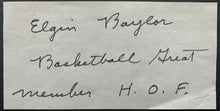 Elgin Baylor
Basketball Great
member H. O. F.